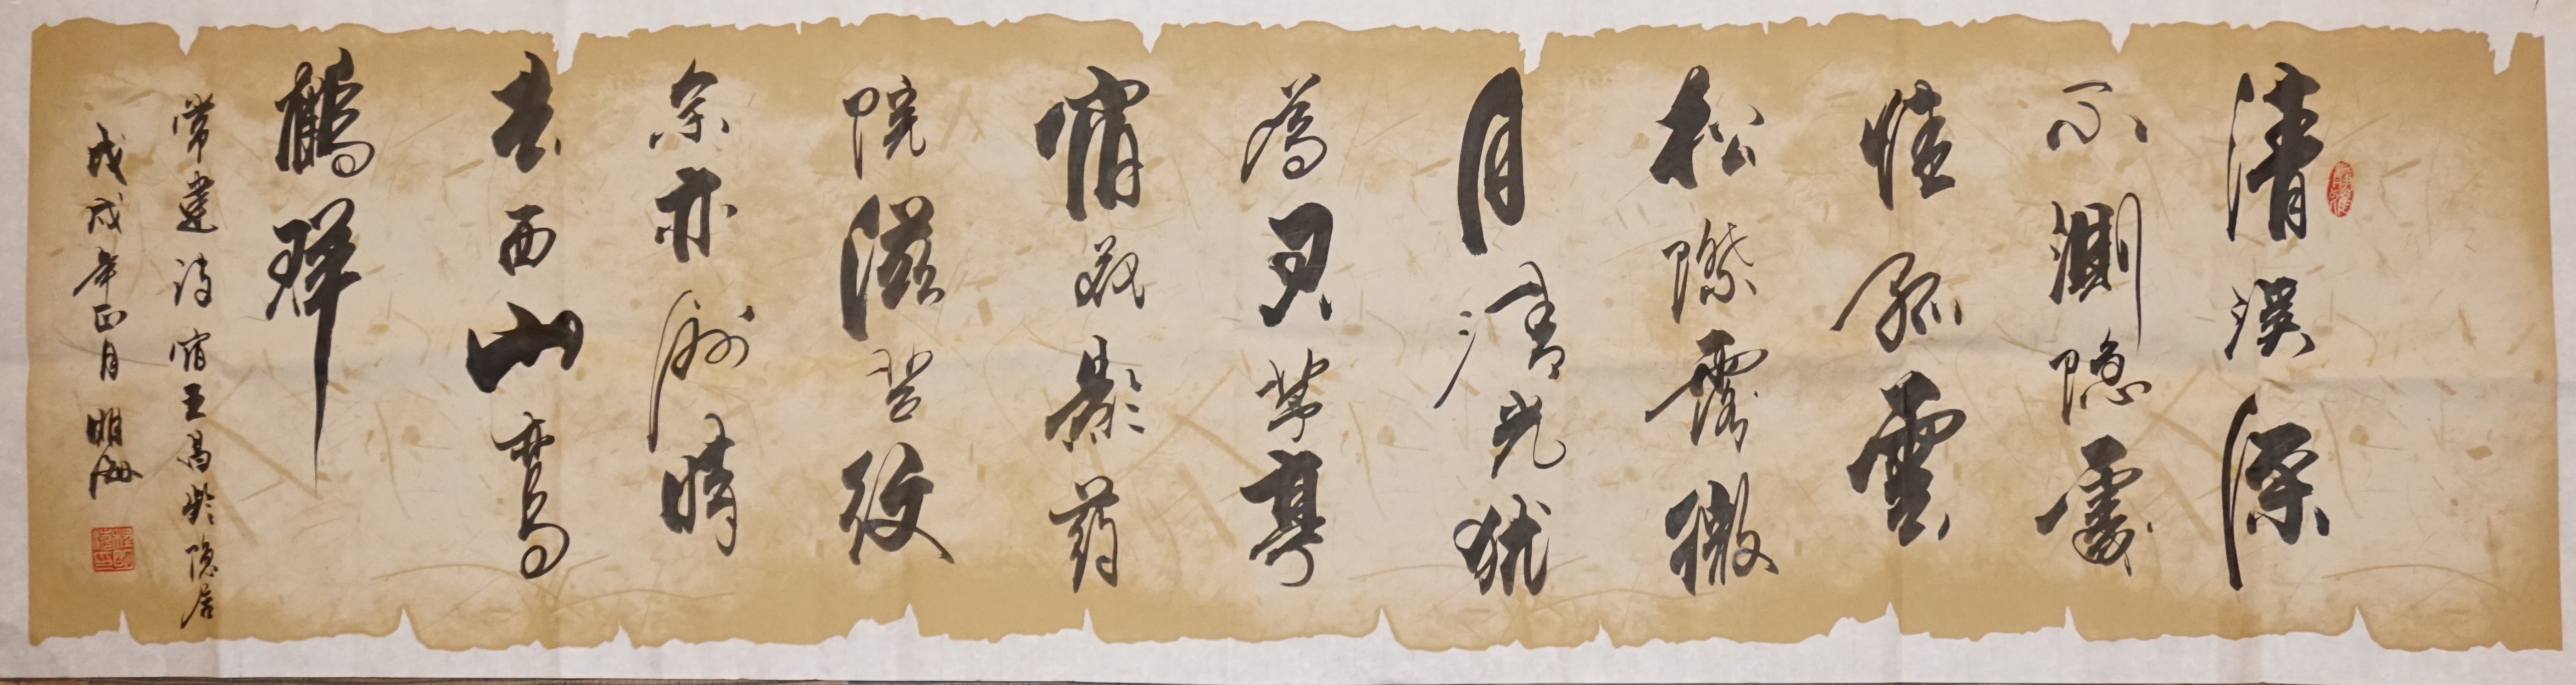 清溪深
不測隐處
惟孤雲
松際露微
月清光犹
為君茅亭
宿花影药
院滋苔紋
余亦谢時
去西山鸾
鶴群
常建诗宿王昌龄隐居
戊戌年正月 明海